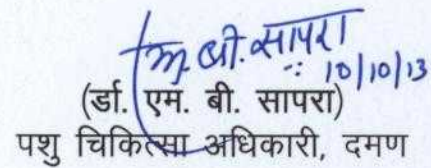 एम. बी. सापरा
10/10/13
(र्डा. एम. बी. सापरा)
पशु चिकित्सा अधिकारी, दमण